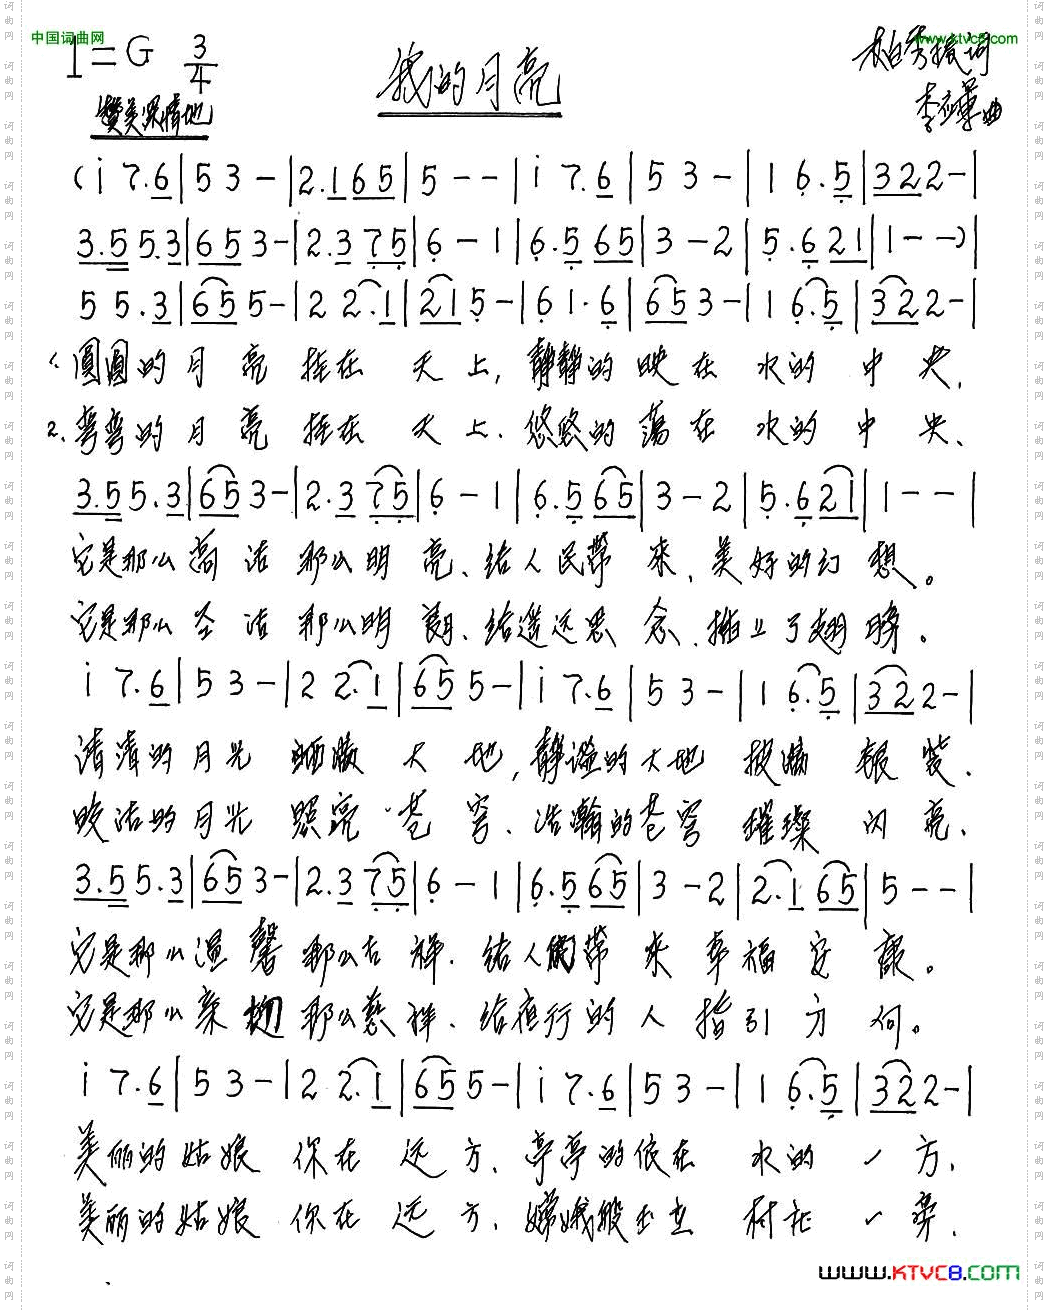 中国词曲网
www.ktvc8.com
1=G 3/4
我的月亮
柏秀振词
李彦军曲
赞美深情地
(i 7.6|5 3 -|2.1 6 5|5 - -|i 7.6|5 3 -|1 6.5|3 2 2 -|
3.5 5.3|6 5 3 -|2.3 7 5|6 - 1|6.5 6 5|3 - 2|5.6 2 1|1 - -)|
5 5.3|6 5 5 -|2 2.1|2 1 5 -|6 1.6|6 5 3 -|1 6.5|3 2 2 -|
1.圆圆的月亮挂在天上,静静的映在水的中央,
2.弯弯的月亮挂在天上,悠悠的荡在水的中央、
3.5 5.3|6 5 3 -|2.3 7 5|6 - 1|6.5 6 5|3 - 2|5.6 2 1|1 - -|
它是那么高洁那么明亮、给人民带来、美好的幻想。
它是那么圣洁那么明朗、给遥远思念、插上了翅膀。
i 7.6|5 3 -|2 2.1|6 5 5 -|i 7.6|5 3 -|1 6.5|3 2 2 -|
清清的月光洒满大地,静谧的大地披满银装、
皎洁的月光照亮苍穹、浩瀚的苍穹璀璨闪亮、
3.5 5.3|6 5 3 -|2.3 7 5|6 - 1|6.5 6 5|3 - 2|2.1 6 5|5 - -|
它是那么温馨那么吉祥.给人们带来幸福安康。
它是那么亲切那么慈祥、给夜行的人指引方向。
i 7.6|5 3 -|2 2.1|6 5 5 -|i 7.6|5 3 -|1 6.5|3 2 2 -|
美丽的姑娘你在远方、亭亭的依在水的一方,
美丽的姑娘你在远方、嫦娥般玉立村在一旁.
www.KTVC8.com